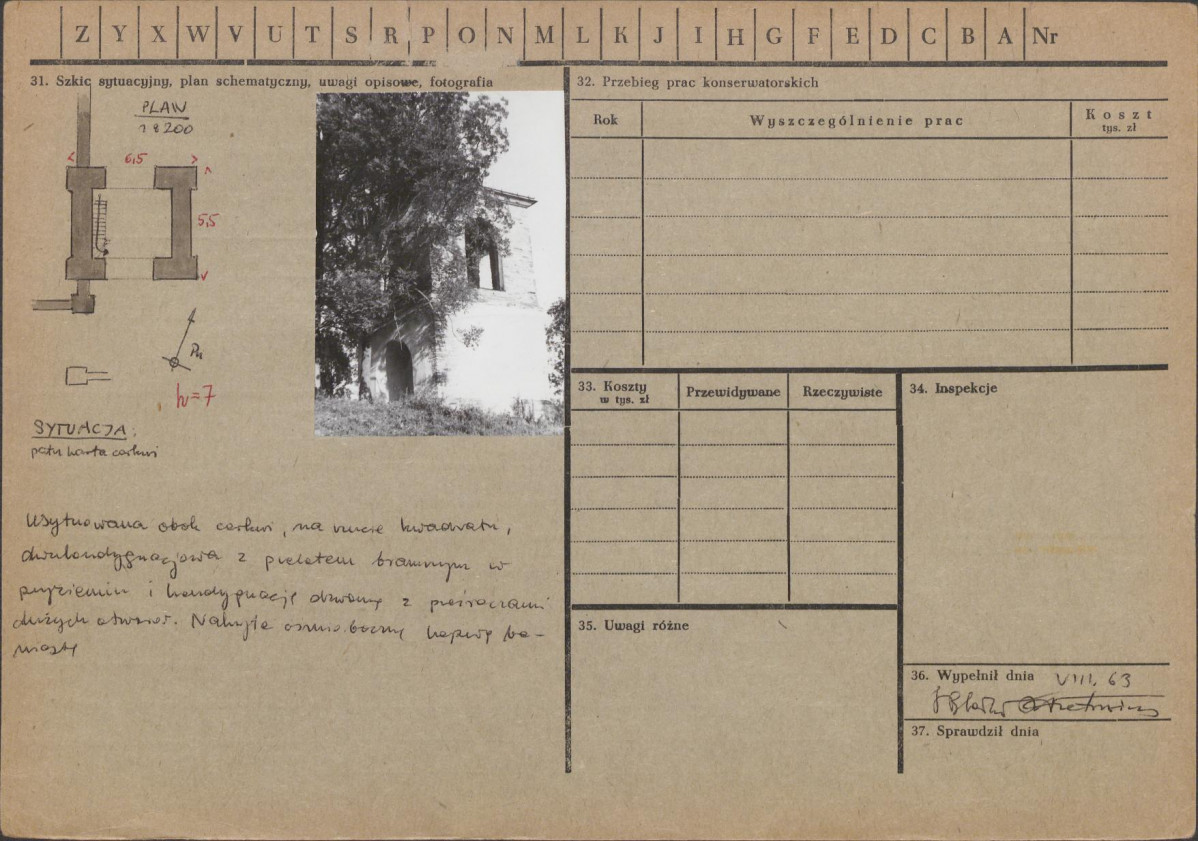 Z Y X W V U T S R P O N M L K J I H G F E D C B A Nr
31. Szkic sytuacyjny, plan schematyczny, uwagi opisowe, fotografia
PLAN
1:200
6,5
5,5
Pn
h=7
SYTUACJA:
patrz karta cerkwi
Usytuowana obok cerkwi, na rzucie kwadratu,
dwukondygnacjowa z przelotem bramnym w
przyziemiu i kondygnacją dzwonną z prześwitami
dużych otworów. Nakryta ośmioboczną kopułą ba-
niastą
32. Przebieg prac konserwatorskich
Rok
Wyszczególnienie prac
Koszt
tys. zł
33. Koszty
w tys. zł
Przewidywane
Rzeczywiste
34. Inspekcje
35. Uwagi różne
36. Wypełnił dnia VIII. 63
37. Sprawdził dnia